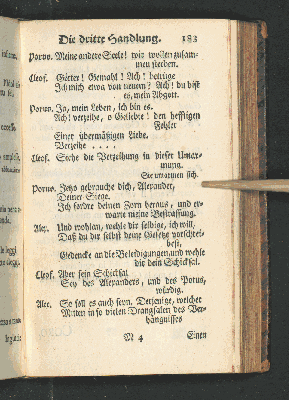 Die dritte Handlung. 183
Porus. Meine andere Seele! wir wollen zusam-
men sterben.
Cleof. Götter! Gemahl! Ach! betrüge
Ich mich etwa von neuem? Ach! du bist
es, mein Abgott.
Porus. Ja, mein Leben, ich bin es.
Ach! verzeihe, o Geliebte! den hefftigen
Fehler
Einer übermäßigen Liebe.
Verzeihe . . . .
Cleof. Siehe die Verzeihung in dieser Umar-
mung.
Sie umarmen sich.
Porus. Jetzo gebrauche dich, Alexander,
Deiner Siege.
Ich fordre deinen Zorn heraus, und er-
warte meine Bestraffung.
Alex. Und wohlan, wehle dir selbige, ich will,
Daß du dir selbst deine Gesetz vorschrei-
best.
Gedencke an die Beleidigungen, und wehle
dir dein Schicksal.
Cleof. Aber sein Schicksal
Sey des Alexanders, und des Porus,
würdig.
Alex. So soll es auch seyn. Derjenige, welcher
Mitten in so vielen Drangsalen des Ver-
hängnisses
M 4 Einen